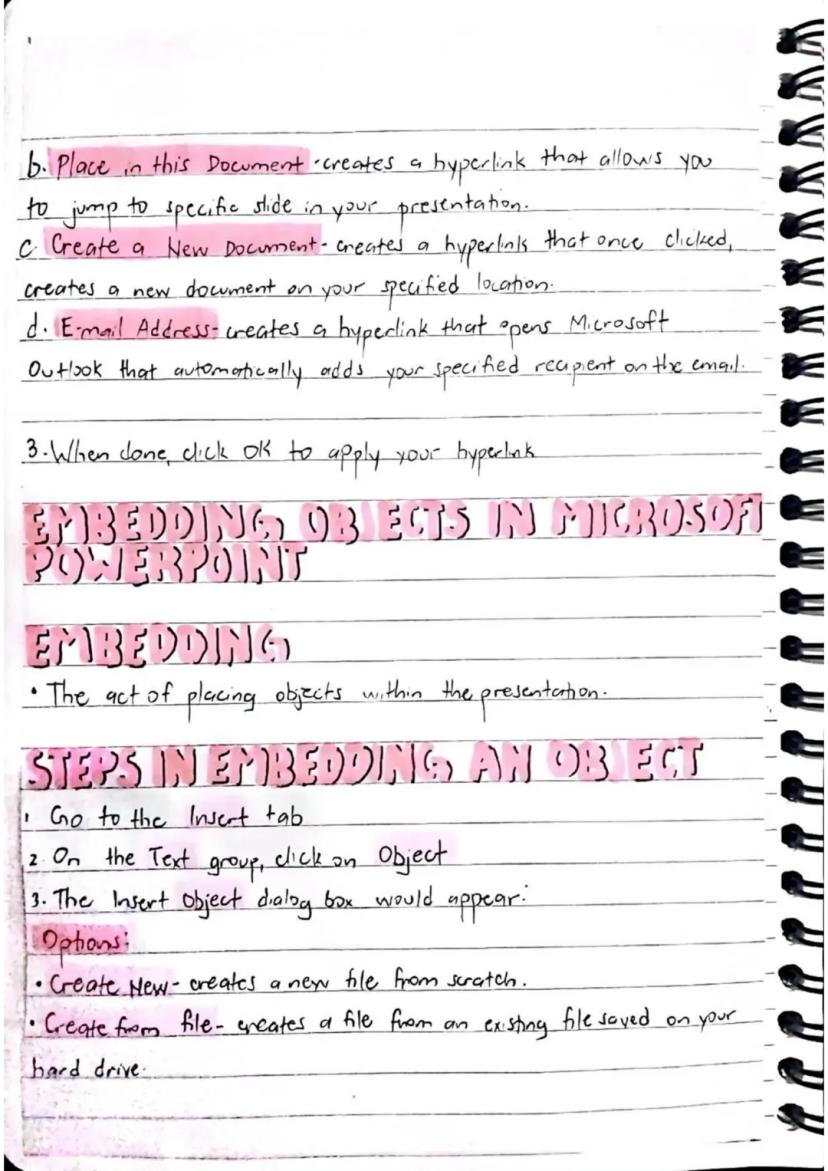 b. Place in this Document - creates a hyperlink that allows you
to jump to specific slide in your presentation.
c. Create a New Document - creates a hyperlink that once clicked,
creates a new document on your specified location.
d. E-mail Address - creates a hyperlink that opens Microsoft
Outlook that automatically adds your specified recipient on the email.
3. When done, click OK to apply your hyperlink
EMBEDDING OBJECTS IN MICROSOFT
POWERPOINT
EMBEDDING
• The act of placing objects within the presentation.
STEPS IN EMBEDDING AN OBJECT
1 Go to the Insert tab
2. On the Text group, click on Object
3. The Insert Object dialog box would appear:
Options:
• Create New - creates a new file from scratch.
• Create from file - creates a file from an existing file saved on your
hard drive.